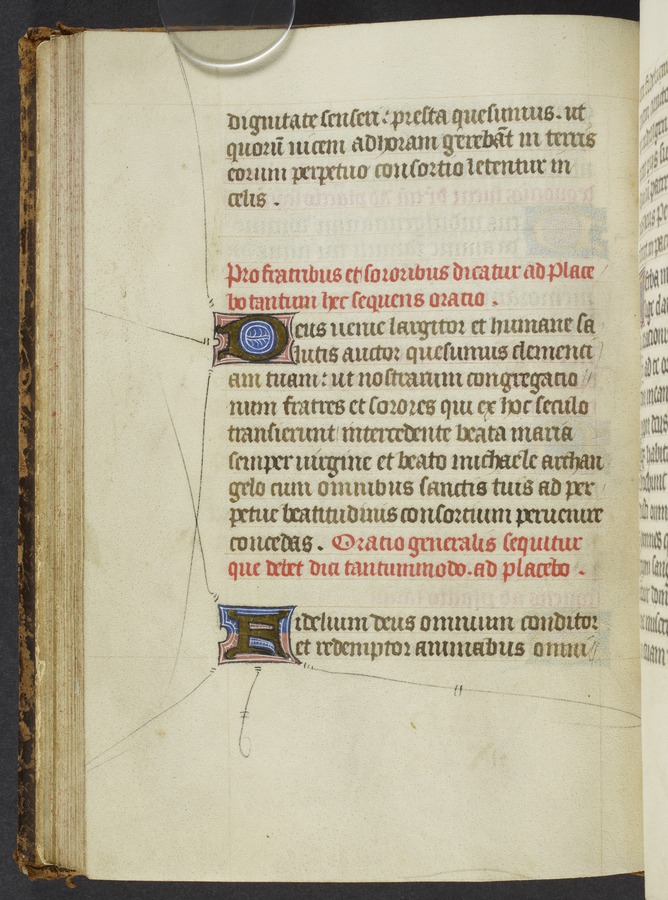 dignitate senseri: presta quesumus. ut
quorū uicem ad horam gerebāt in terris
eorum perpetuo consortio letentur in
celis.
Pro fratribus et sororibus dicatur ad Place
bo tantum hec sequens oratio.
Deus uenie largitor et humane sa
lutis auctor quesumus clementi
am tuam: ut nostrarum congregatio
num fratres et sorores qui ex hoc seculo
transierunt intercedente beata maria
semper uirgine et beato michaele archan
gelo cum omnibus sanctis tuis ad per
petue beatitudinis consortium peruenire
concedas. Oratio generalis sequitur
que debet dici tantummodo. ad placebo.
Fidelium deus omnium conditor
et redemptor animabus omni